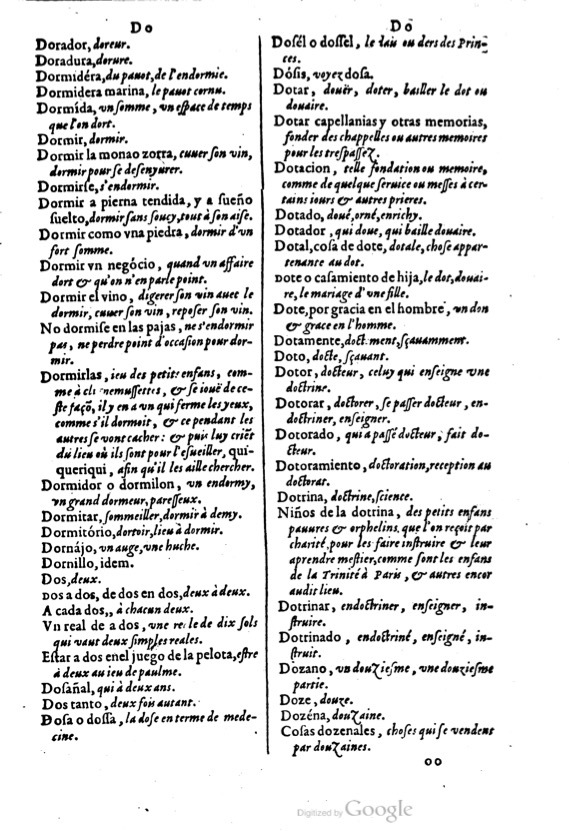 Do
Dorador, doreur.
Doradura, dorure.
Dormidéra, du pauot, de l'endormie.
Dormidera marina, le pauot cornu.
Dormída, vn somme, vn espace de temps
que l'on dort.
Dormir, dormir.
Dormir la monao zorra, cuuer son vin,
dormir pour se desenyurer.
Dormirse, s'endormir.
Dormir a pierna tendida, y a sueño
suelto, dormir sans soucy, tout à son aise.
Dormir como vna piedra, dormir d'vn
fort somme.
Dormir vn negócio, quand vn affaire
dort & qu'on n'en parle point.
Dormir el vino, digerer son vin auec le
dormir, cuuer son vin, reposer son vin.
No dormise en las pajas, ne s'endormir
pas, ne perdre point d'occasion pour dor-
mir.
Dormirlas, ieu des petits enfans, com-
me à nemussettes, & se iouë de ce-
ste façõ, il y en a vn qui ferme les yeux,
comme s'il dormoit, & ce pendant les
autres se vont cacher: & puis luy criẽt
du lieu où ils sont pour l'esueiller, qui-
queriqui, afin qu'il les aille chercher.
Dormidor o dormilon, vn endormy,
vn grand dormeur, paresseux.
Dormitar, sommeiller, dormir à demy.
Dormitório, dortoir, lieu à dormir.
Dornájo, vn auge, vne huche.
Dornillo, idem.
Dos, deux.
Dos a dos, de dos en dos, deux à deux.
A cada dos,, à chacun deux.
Vn real de a dos, vne de dix sols
qui vaut deux simples reales.
Estar a dos enel juego de la pelota, estre
à deux au ieu de paulme.
Dosañal, qui à deux ans.
Dos tanto, deux fois autant.
Dosa o dossa, la dose en terme de mede-
cine.
Do
Dosél o dossel, le dais ou ders des Prin-
ces.
Dósis, voyez dosa.
Dotar, douër, doter, bailler le dot ou
douaire.
Dotar capellanias y otras memorias,
fonder des chappelles ou autres memoires
pour les trespassez.
Dotacion, telle fondation ou memoire,
comme de quelque seruice ou messes à cer-
tains iours & autres prieres.
Dotado, doué, orné, enrichy.
Dotador, qui doue, qui baille douaire.
Dotal, cosa de dote, dotale, chose appar-
tenante au dot.
Dote o casamiento de hija, le dot, douai-
re, le mariage d'vne fille.
Dote, por gracia en el hombre, vn don
& grace en l'homme.
Dotamente, doct ment, sçauamment.
Doto, docte, sçauant.
Dotor, docteur, celuy qui enseigne vne
doctrine.
Dotorar, doctorer, se passer docteur, en-
doctriner, enseigner.
Dotorado, qui a passé docteur, fait do-
cteur.
Dotoramiento, doctoration, reception au
doctorat.
Dotrina, doctrine, science.
Niños de la dotrina, des petits enfans
pauures & orphelins, que l'on reçoit par
charité, pour les faire instruire & leur
aprendre mestier, comme sont les enfans
de la Trinité à Paris, & autres encor
audit lieu.
Dotrinar, endoctriner, enseigner, in-
struire.
Dotrinado, endoctriné, enseigné, in-
struit.
Dozano, vn douziesme, vne douziesme
partie.
Doze, douze.
Dozéna, douzaine.
Cosas dozenales, choses qui se vendent
par douzaines.
oo
Digitized by Google